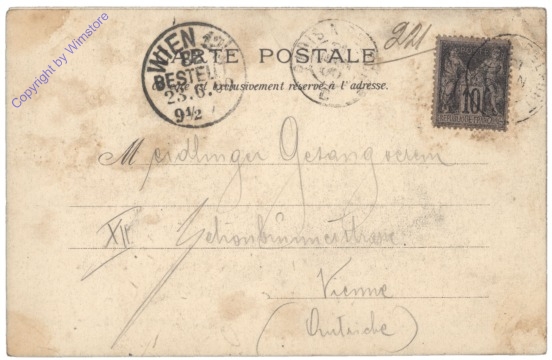 Copyright by Wimstore
WIEN
BESTELLT
9½
221
CARTE POSTALE
exclusivement réservé à l'adresse.
10
REPUBLIQUE FRANÇAISE
Meidlinger Gesangverein
XII Schönbrunnerstrasse
Vienne
(Autriche)